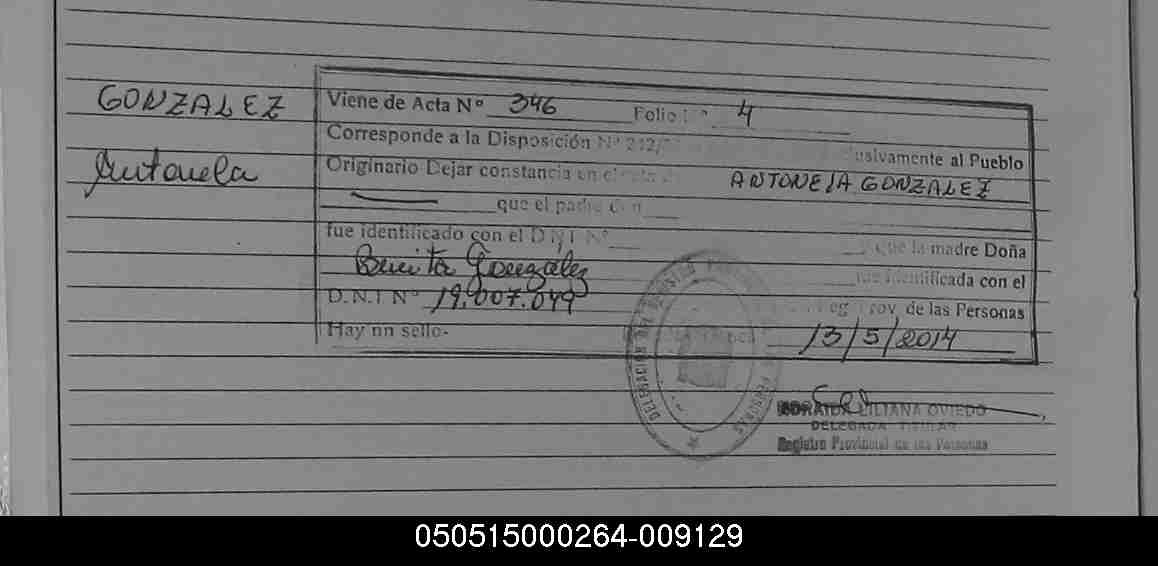 GONZALEZ
Antonela
Viene de Acta Nº 346 Folio Nº 4
Corresponde a la Disposición Nº 212/ usivamente al Pueblo
Originario Dejar constancia en el ANTONELA GONZALEZ
que el padre Don
fue identificado con el D.N.I Nº y que la madre Doña
Benita González identificada con el
D.N.I Nº 19.007.049 Reg Prov. de las Personas
Hay un sello- 13/5/2014
DELEGACION DEL REGISTRO PERSONAS
LILIANA OVIEDO
DELEGADA TITULAR
Registro Provincial de las Personas
050515000264-009129